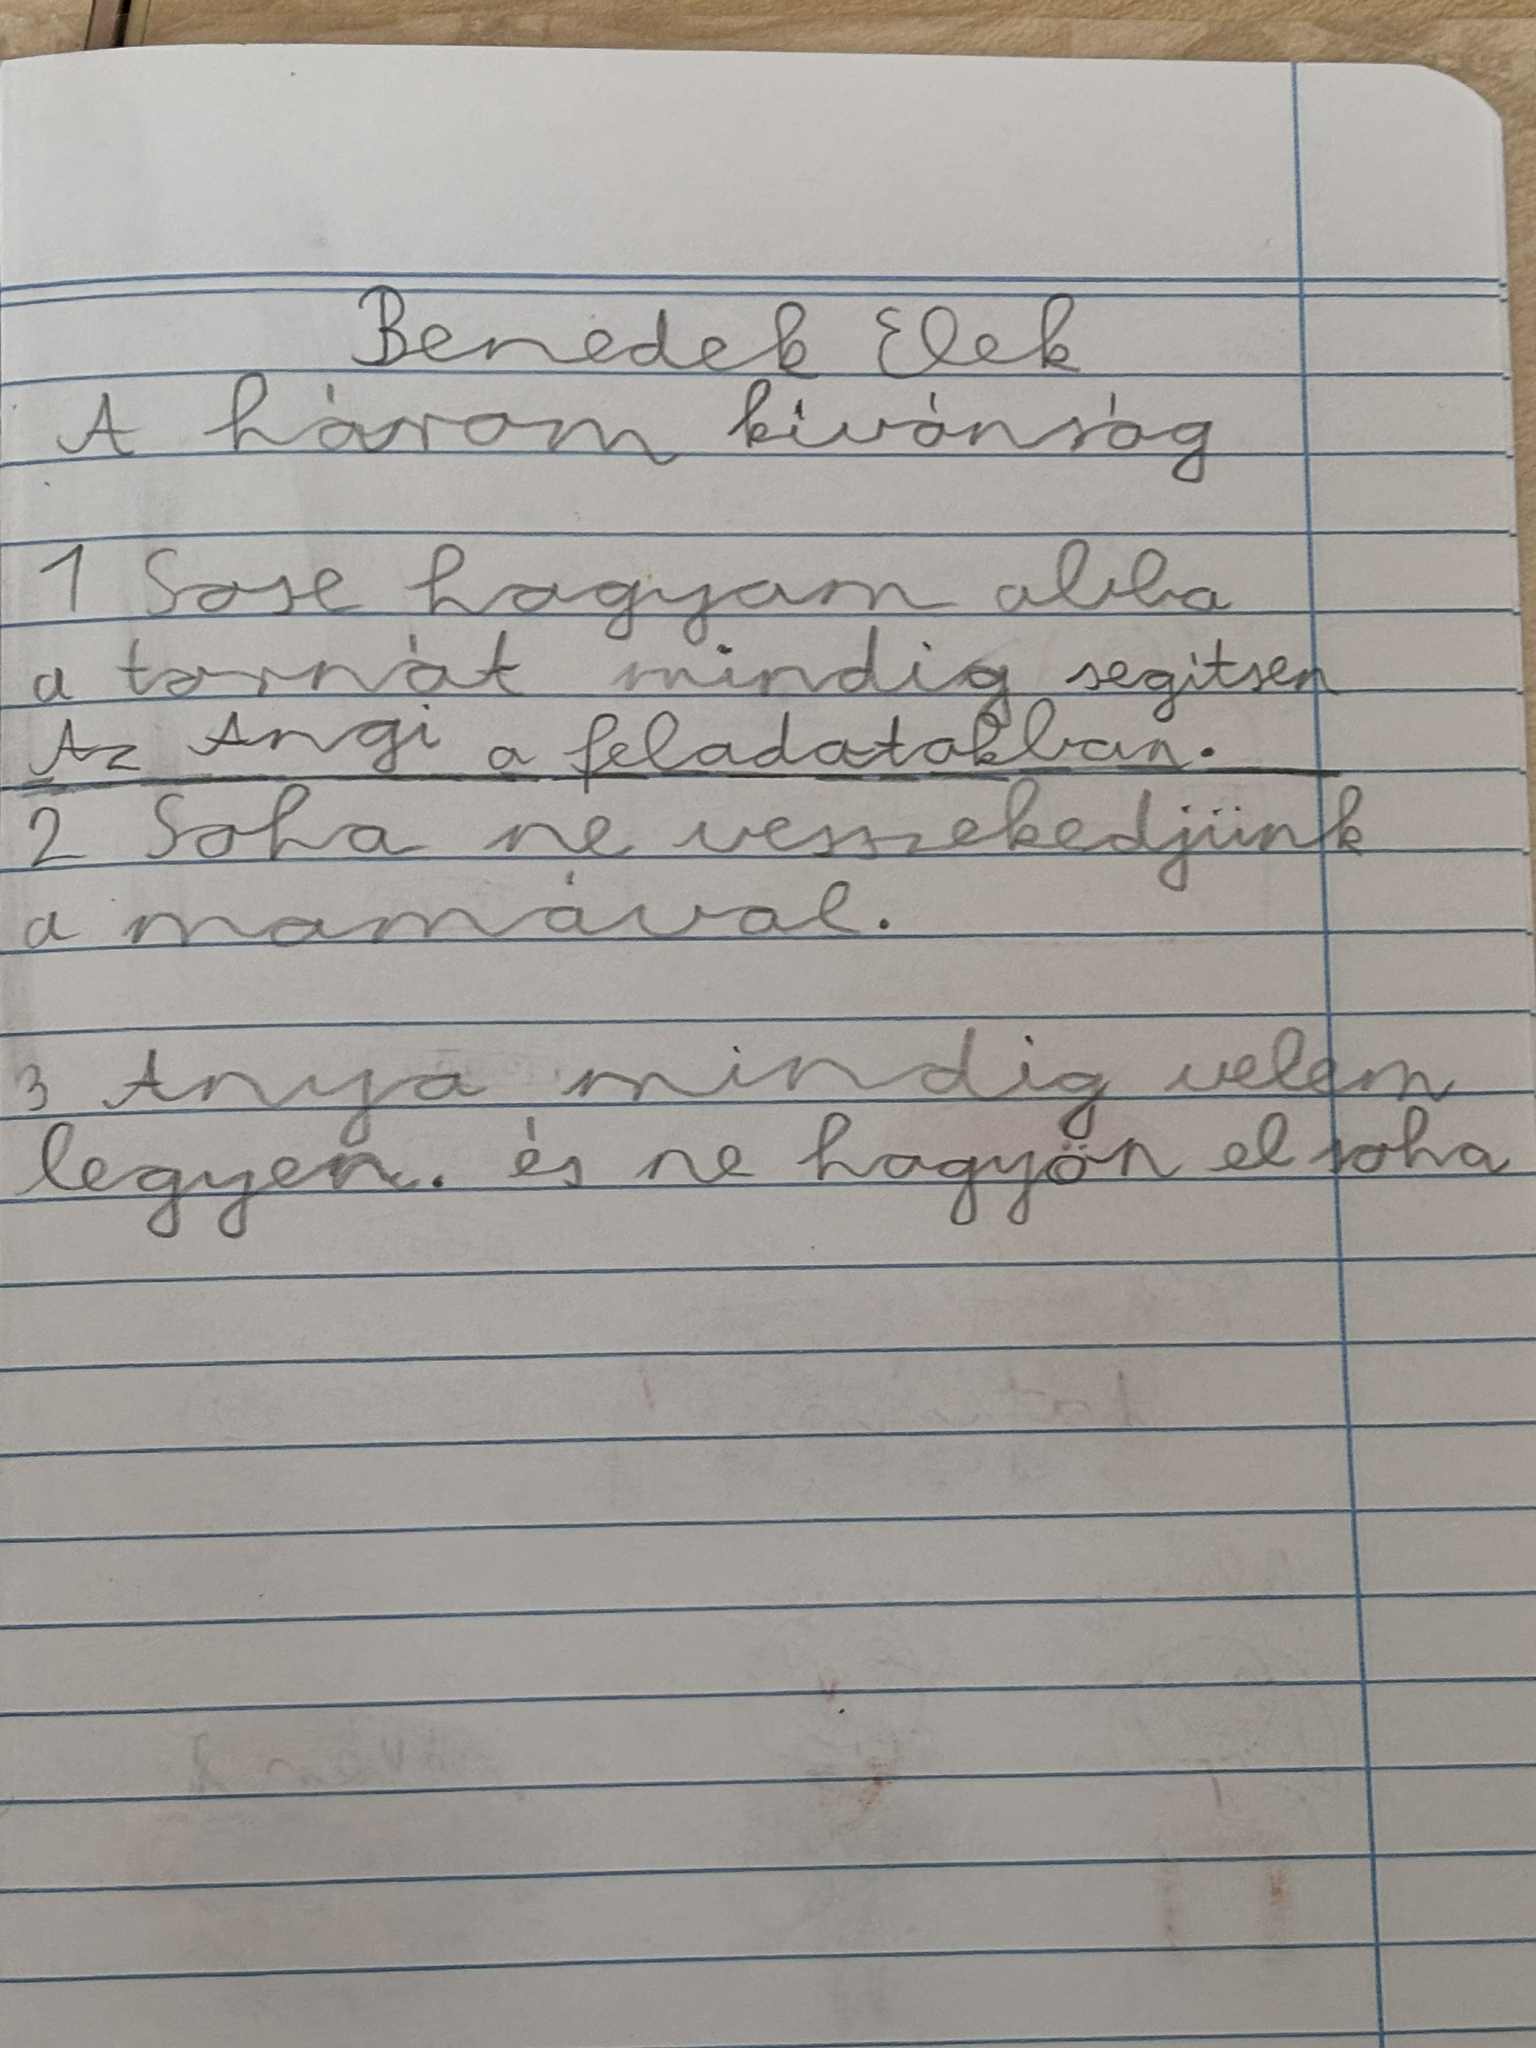 Benedek Elek
A három kívánság
1 Sose hagyam abba
a tornát mindig segitsen
Az Angi a feladatokban.
2 Soha ne vesszekedjünk
a mamával.
3 Anya mindig velem
legyen. és ne hagyön el soha